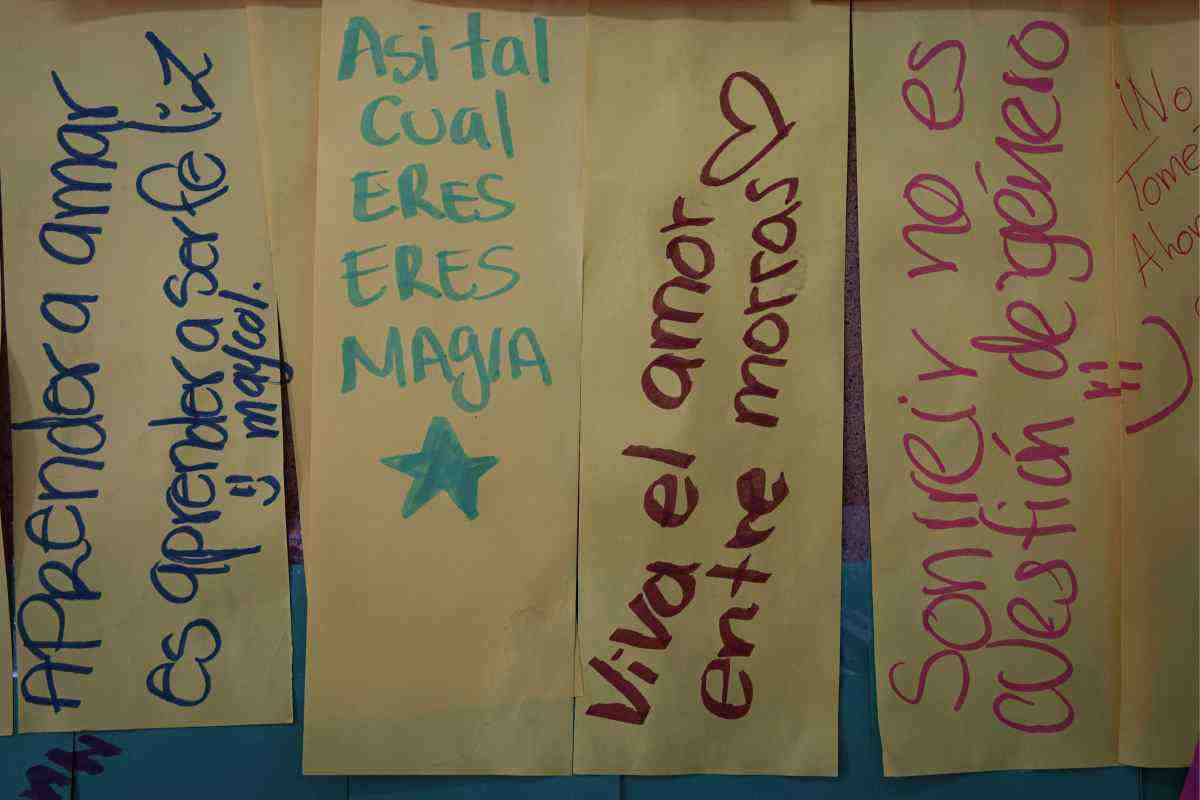 APrender a amar
Es aprender a ser feliz
:) maycol.
Asi tal
Cual
ERES
ERES
MAgIA
Viva el amor
entre morras
Sonreir no es
cuestián de género
¡No
Ahor